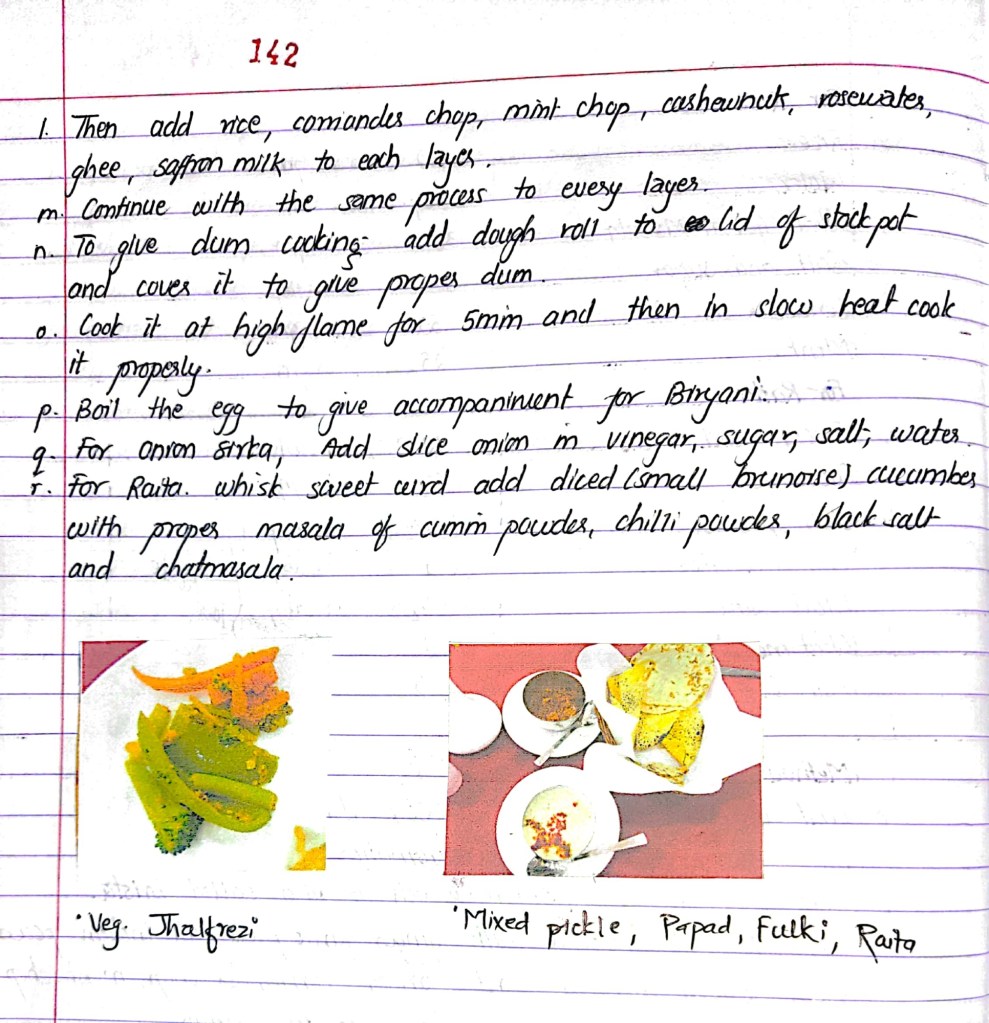 142
l. Then add rice, coriander chop, mint chop, cashewnut, rosewater,
ghee, saffron milk to each layer.
m. Continue with the same process to every layer.
n. To give dum cooking add dough roll to lid of stock pot
and cover it to give proper dum.
o. Cook it at high flame for 5min and then in slow heat cook
it properly.
p. Boil the egg to give accompaniment for Biryani.
q. For onion sirka, Add slice onion in vinegar, sugar, salt, water.
r. For Raita. whisk sweet curd add diced (small brunoise) cucumber
with proper masala of cumin powder, chilli powder, black salt
and chatmasala.
•Veg. Jhalfrezi
•Mixed pickle, Papad, Fulki, Raita